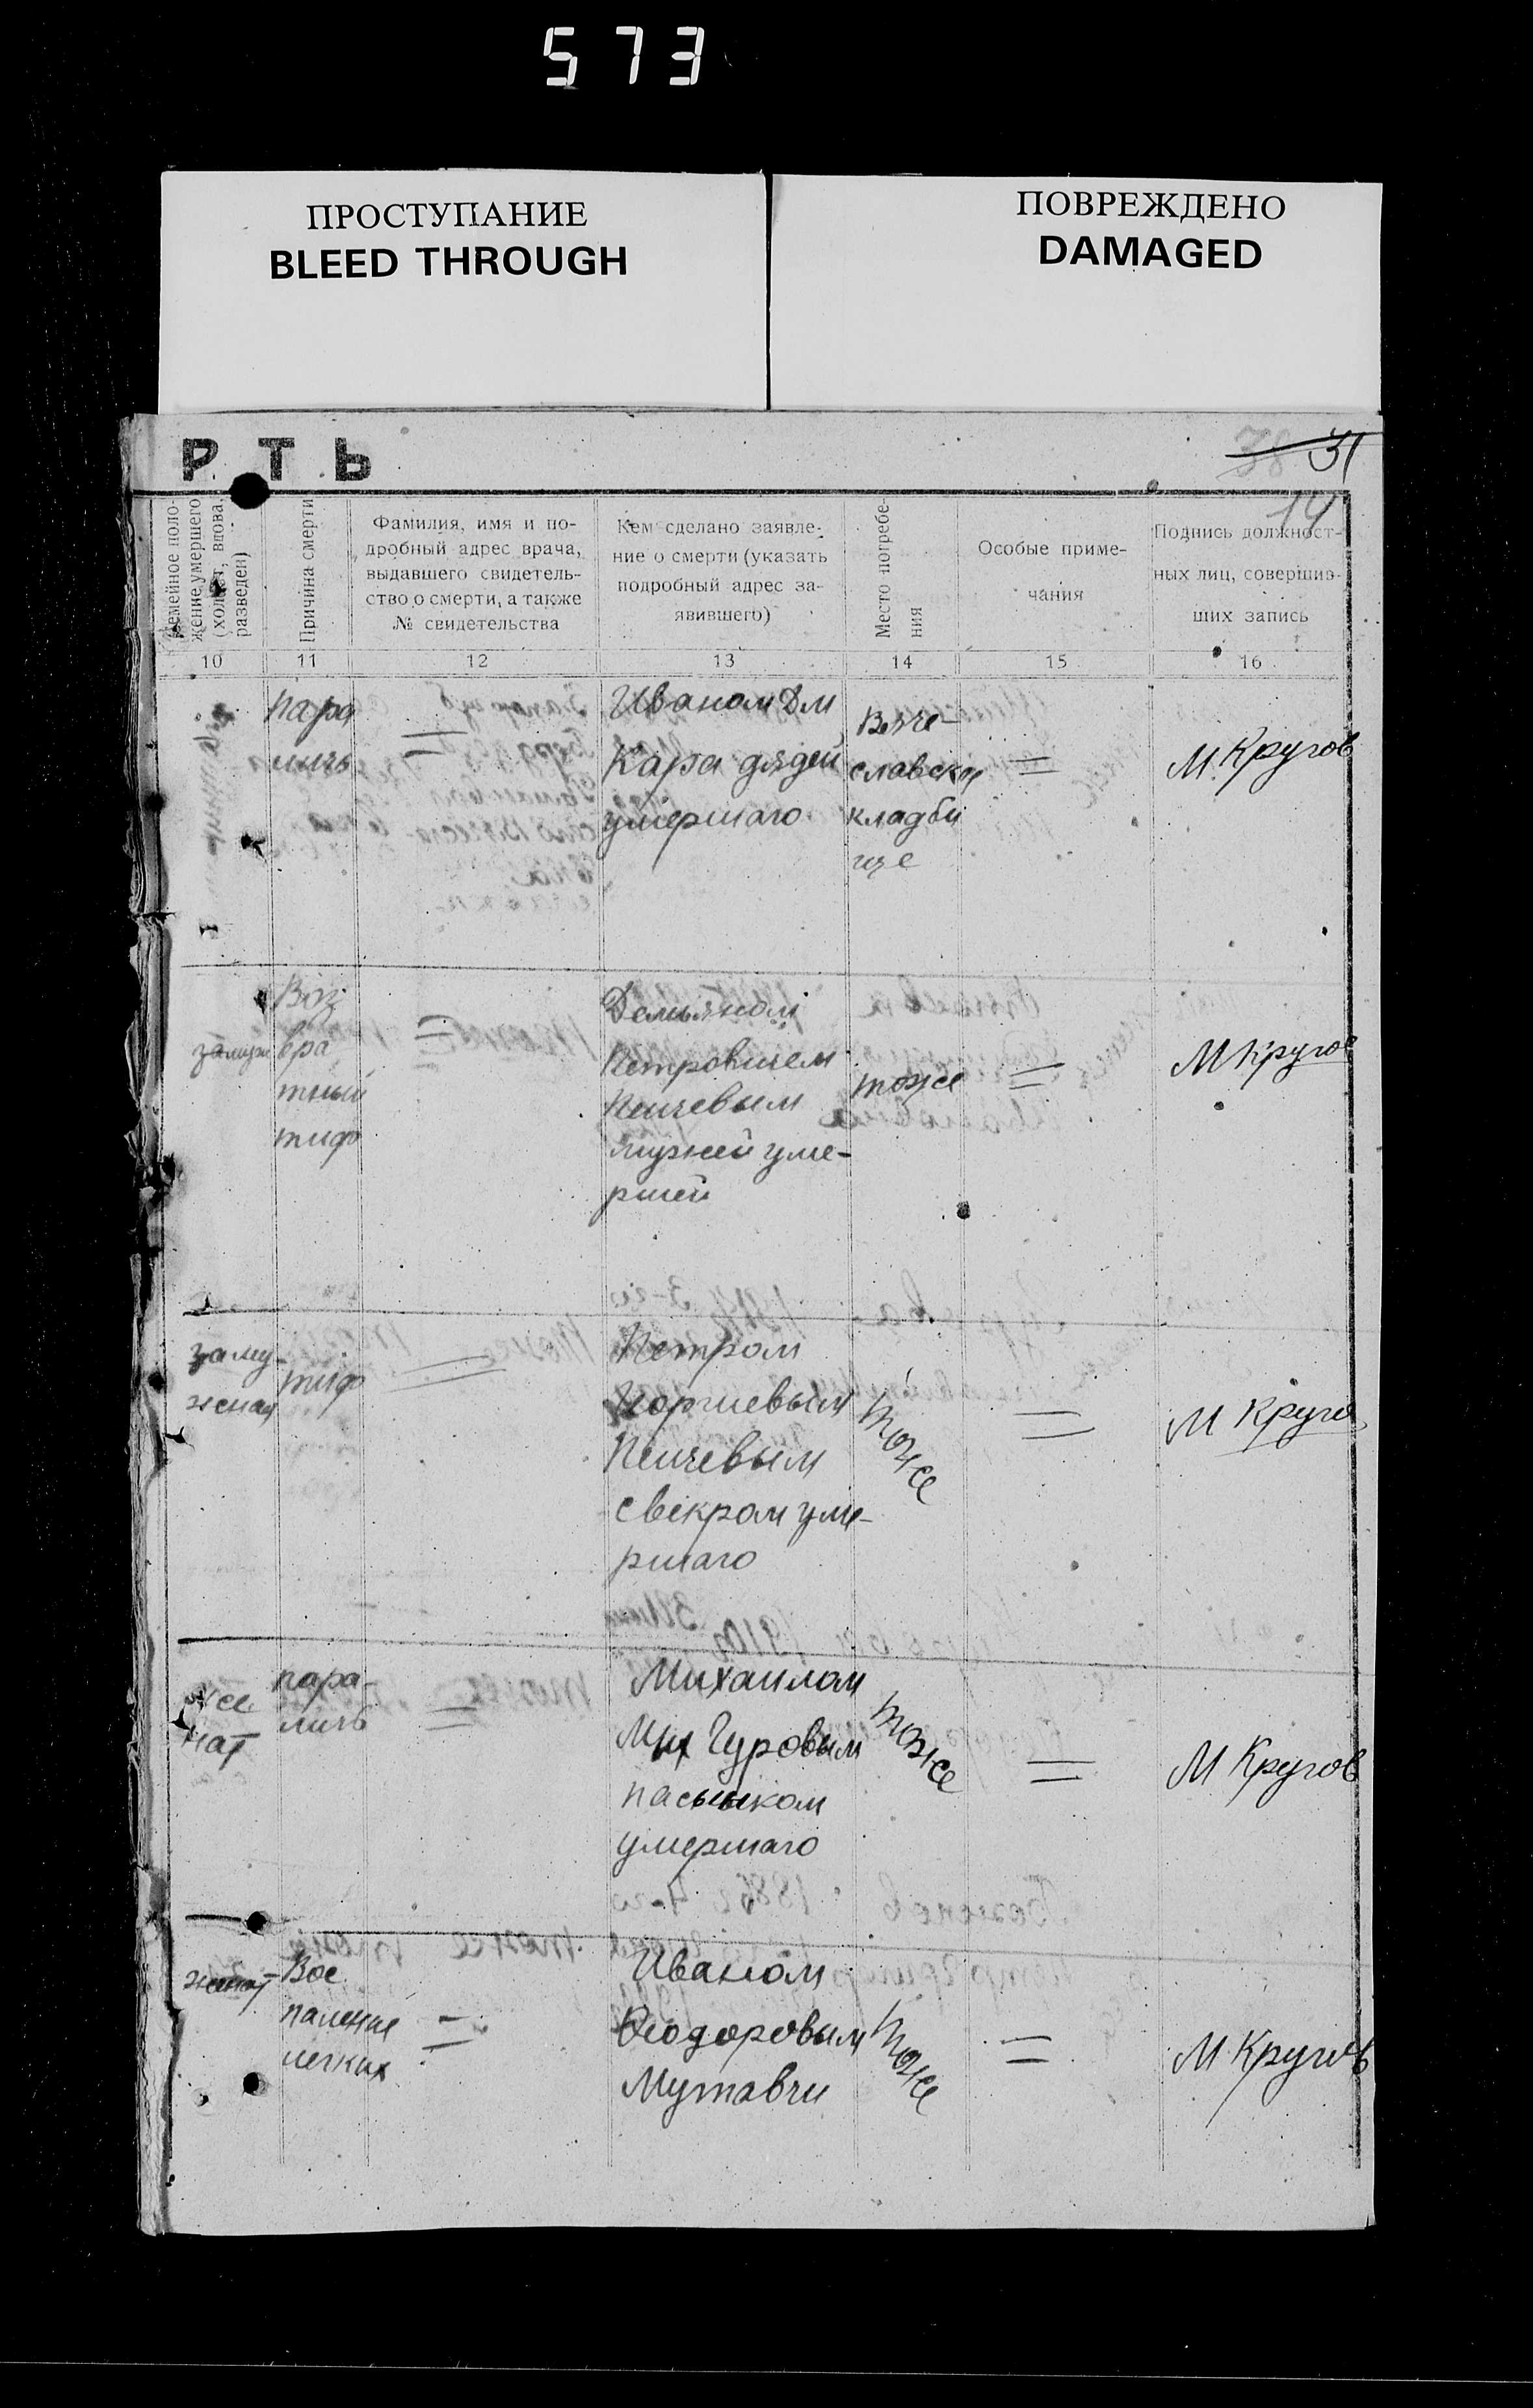 573
ПРОСТУПАНИЕ
BLEED THROUGH
ПОВРЕЖДЕНО
DAMAGED
РТЬ
38 31
14
Семейное поло-
жение умершего
(холост, вдова,
разведен)
Причина смерти
Фамилия, имя и по-
дробный адрес врача,
выдавшего свидетель-
ство о смерти, а также
№ свидетельства
Кем сделано заявле-
ние о смерти (указать
подробный адрес за-
явившего)
Место погребе-
ния
Особые приме-
чания
Подпись должност-
ных лиц, совершив-
ших запись
10 11 12 13 14 15 16
пара
личь
=
Иваном Дм
Кара дядей
умершаго
Вяче-
славское
кладби
ще
=
М. Кругов
замуж
Воз
вра
тный
тиф
=
Демьяном
Петровичем
Пейчевым
мужей уме-
ршей
тоже
=
М Кругов
заму-
жная
тиф
=
Петром
Георгиевым
Пейчевым
свекром уме-
ршаго
тоже
=
М Кругов
же
нат
пара-
личь
=
Михаилом
Мих Гуровым
пасынком
умершаго
тоже
=
М Кругов
женат
Вос
паление
легких
=
Иваном
Феодоровым
Мутавчи
тоже
=
М. Кругов